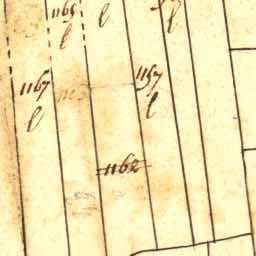 1165
l
l
l
1167
l
1157
l
1162